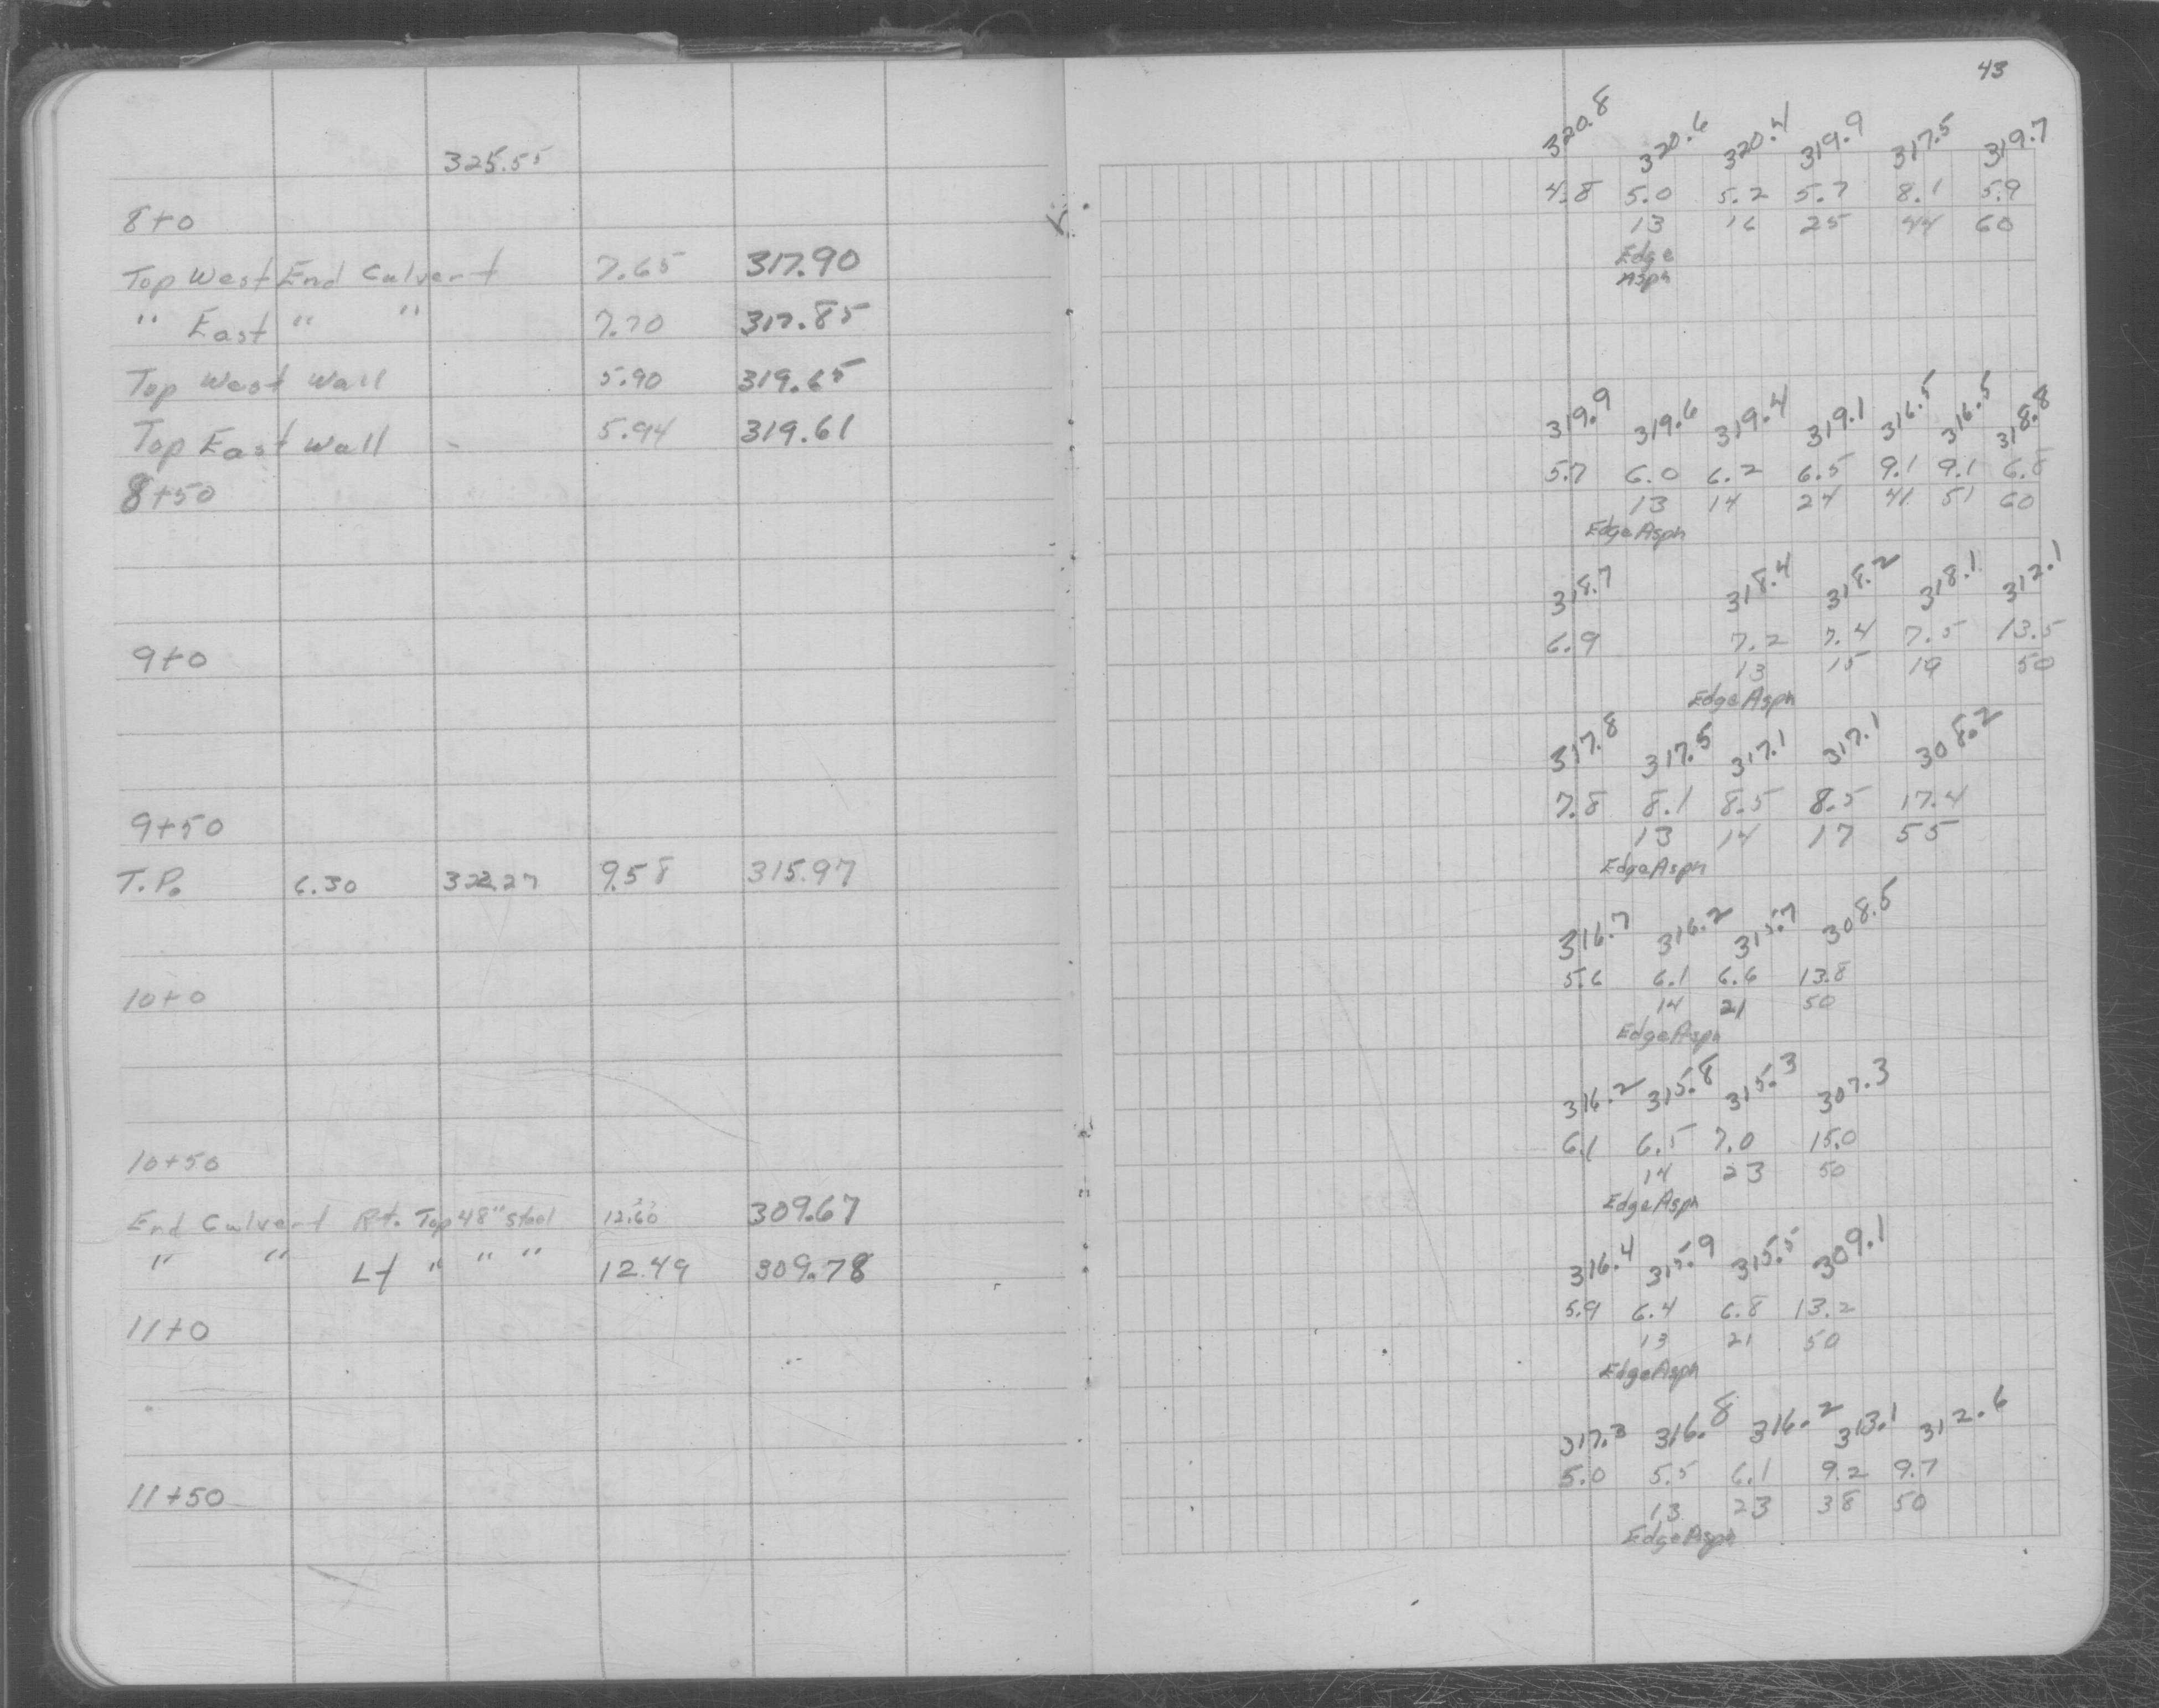 325.55
8+0
Top West End Culvert 7.65 317.90
" East " " 7.70 317.85
Top West Wall 5.90 319.65
Top East Wall - 5.94 319.61
8+50
9+0
9+50
T.P. 6.30 322.27 9.58 315.97
10+0
10+50
End Culvert Rt. Top 48" Steel 12.60 309.67
" " Lt " " " 12.49 309.78
11+0
11+50
43
320.8 320.6 320.4 319.9 317.5 319.7
4.8 5.0 5.2 5.7 8.1 5.9
13 16 25 44 60
Edge
Asph
319.9 319.6 319.4 319.1 316.5 316.5 318.8
5.7 6.0 6.2 6.5 9.1 9.1 6.8
13 14 24 41 51 60
Edge Asph
318.7 318.4 318.2 318.1 312.1
6.9 7.2 7.4 7.5 13.5
13 15 19 50
Edge Asph
317.8 317.5 317.1 317.1 308.2
7.8 8.1 8.5 8.5 17.4
13 14 17 55
Edge Asph
316.7 316.2 315.7 308.5
5.6 6.1 6.6 13.8
14 21 50
Edge Asph
316.2 315.8 315.3 307.3
6.1 6.5 7.0 15.0
14 23 50
Edge Asph
316.4 315.9 315.5 309.1
5.9 6.4 6.8 13.2
13 21 50
Edge Asph
317.3 316.8 316.2 313.1 312.6
5.0 5.5 6.1 9.2 9.7
13 23 38 50
Edge Asph